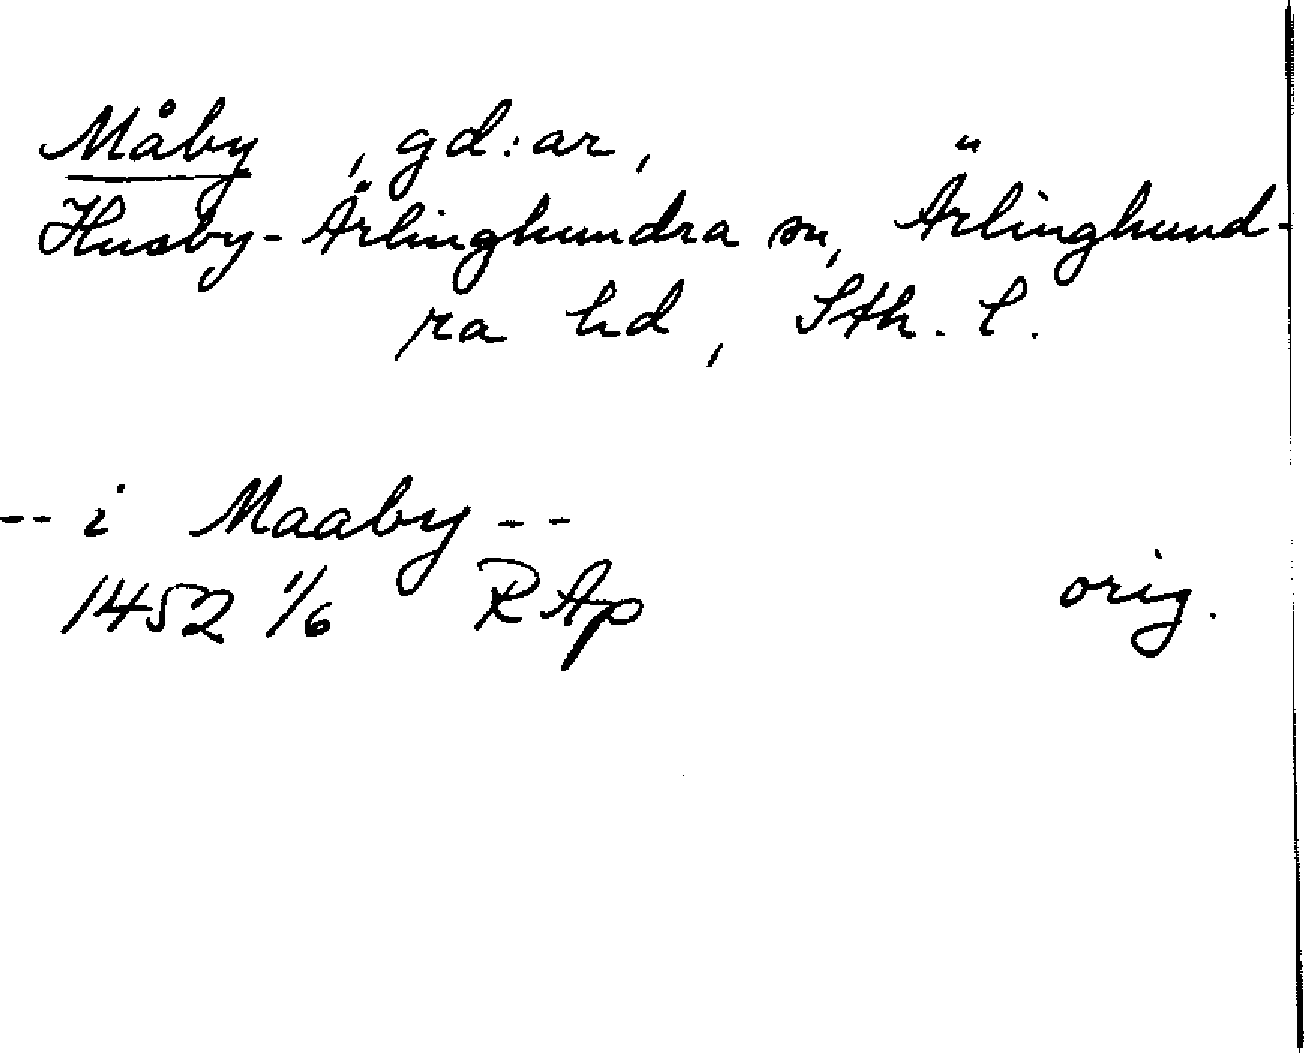 Måby, gd:ar,
Husby-Ärlinghundra sn, Ärlinghund-
ra hd, Sth. l.
-- i Maaby --
1452 1/6 RAp orig.